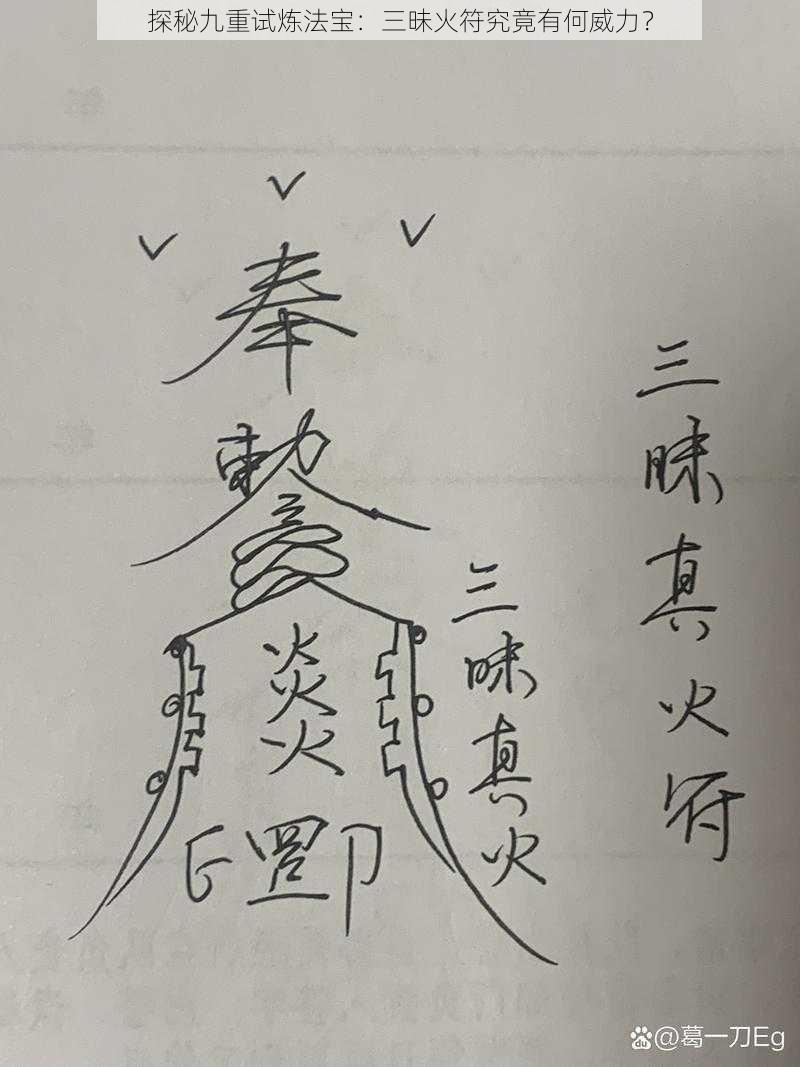 探秘九重试炼法宝：三昧火符究竟有何威力？
奉
勅
炎
火
罡
三昧真火
三昧真火符
@葛一刀Eg